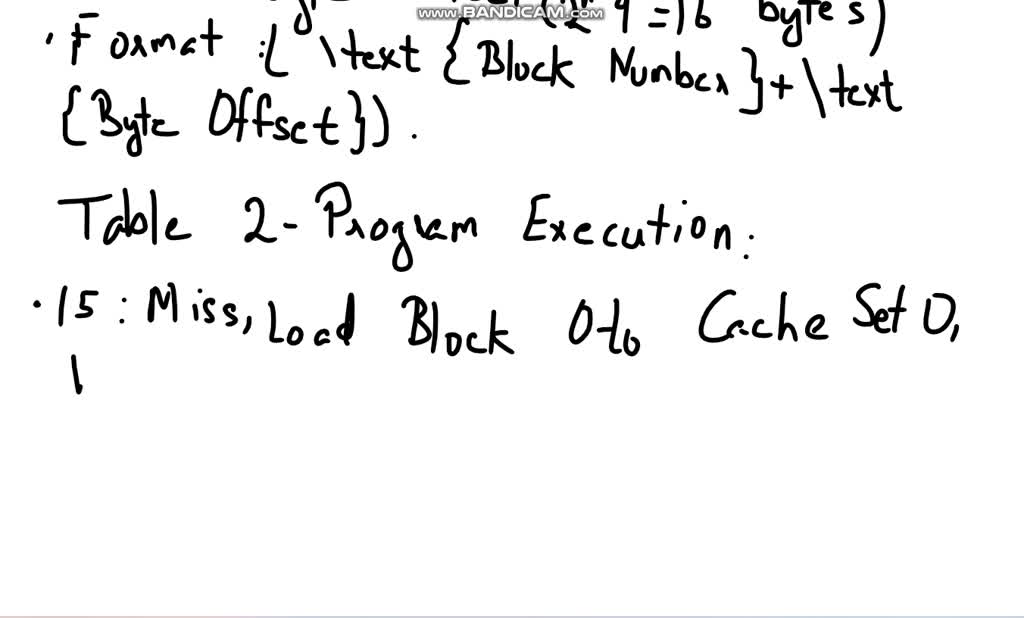 www.BANDICAM.com
4 = 16 bytes)
· Format :( \text {Block Number} + \text
{Byte Offset}) .
Table 2 - Program Execution :
· 15 : Miss, Load Block 0 to Cache Set 0,